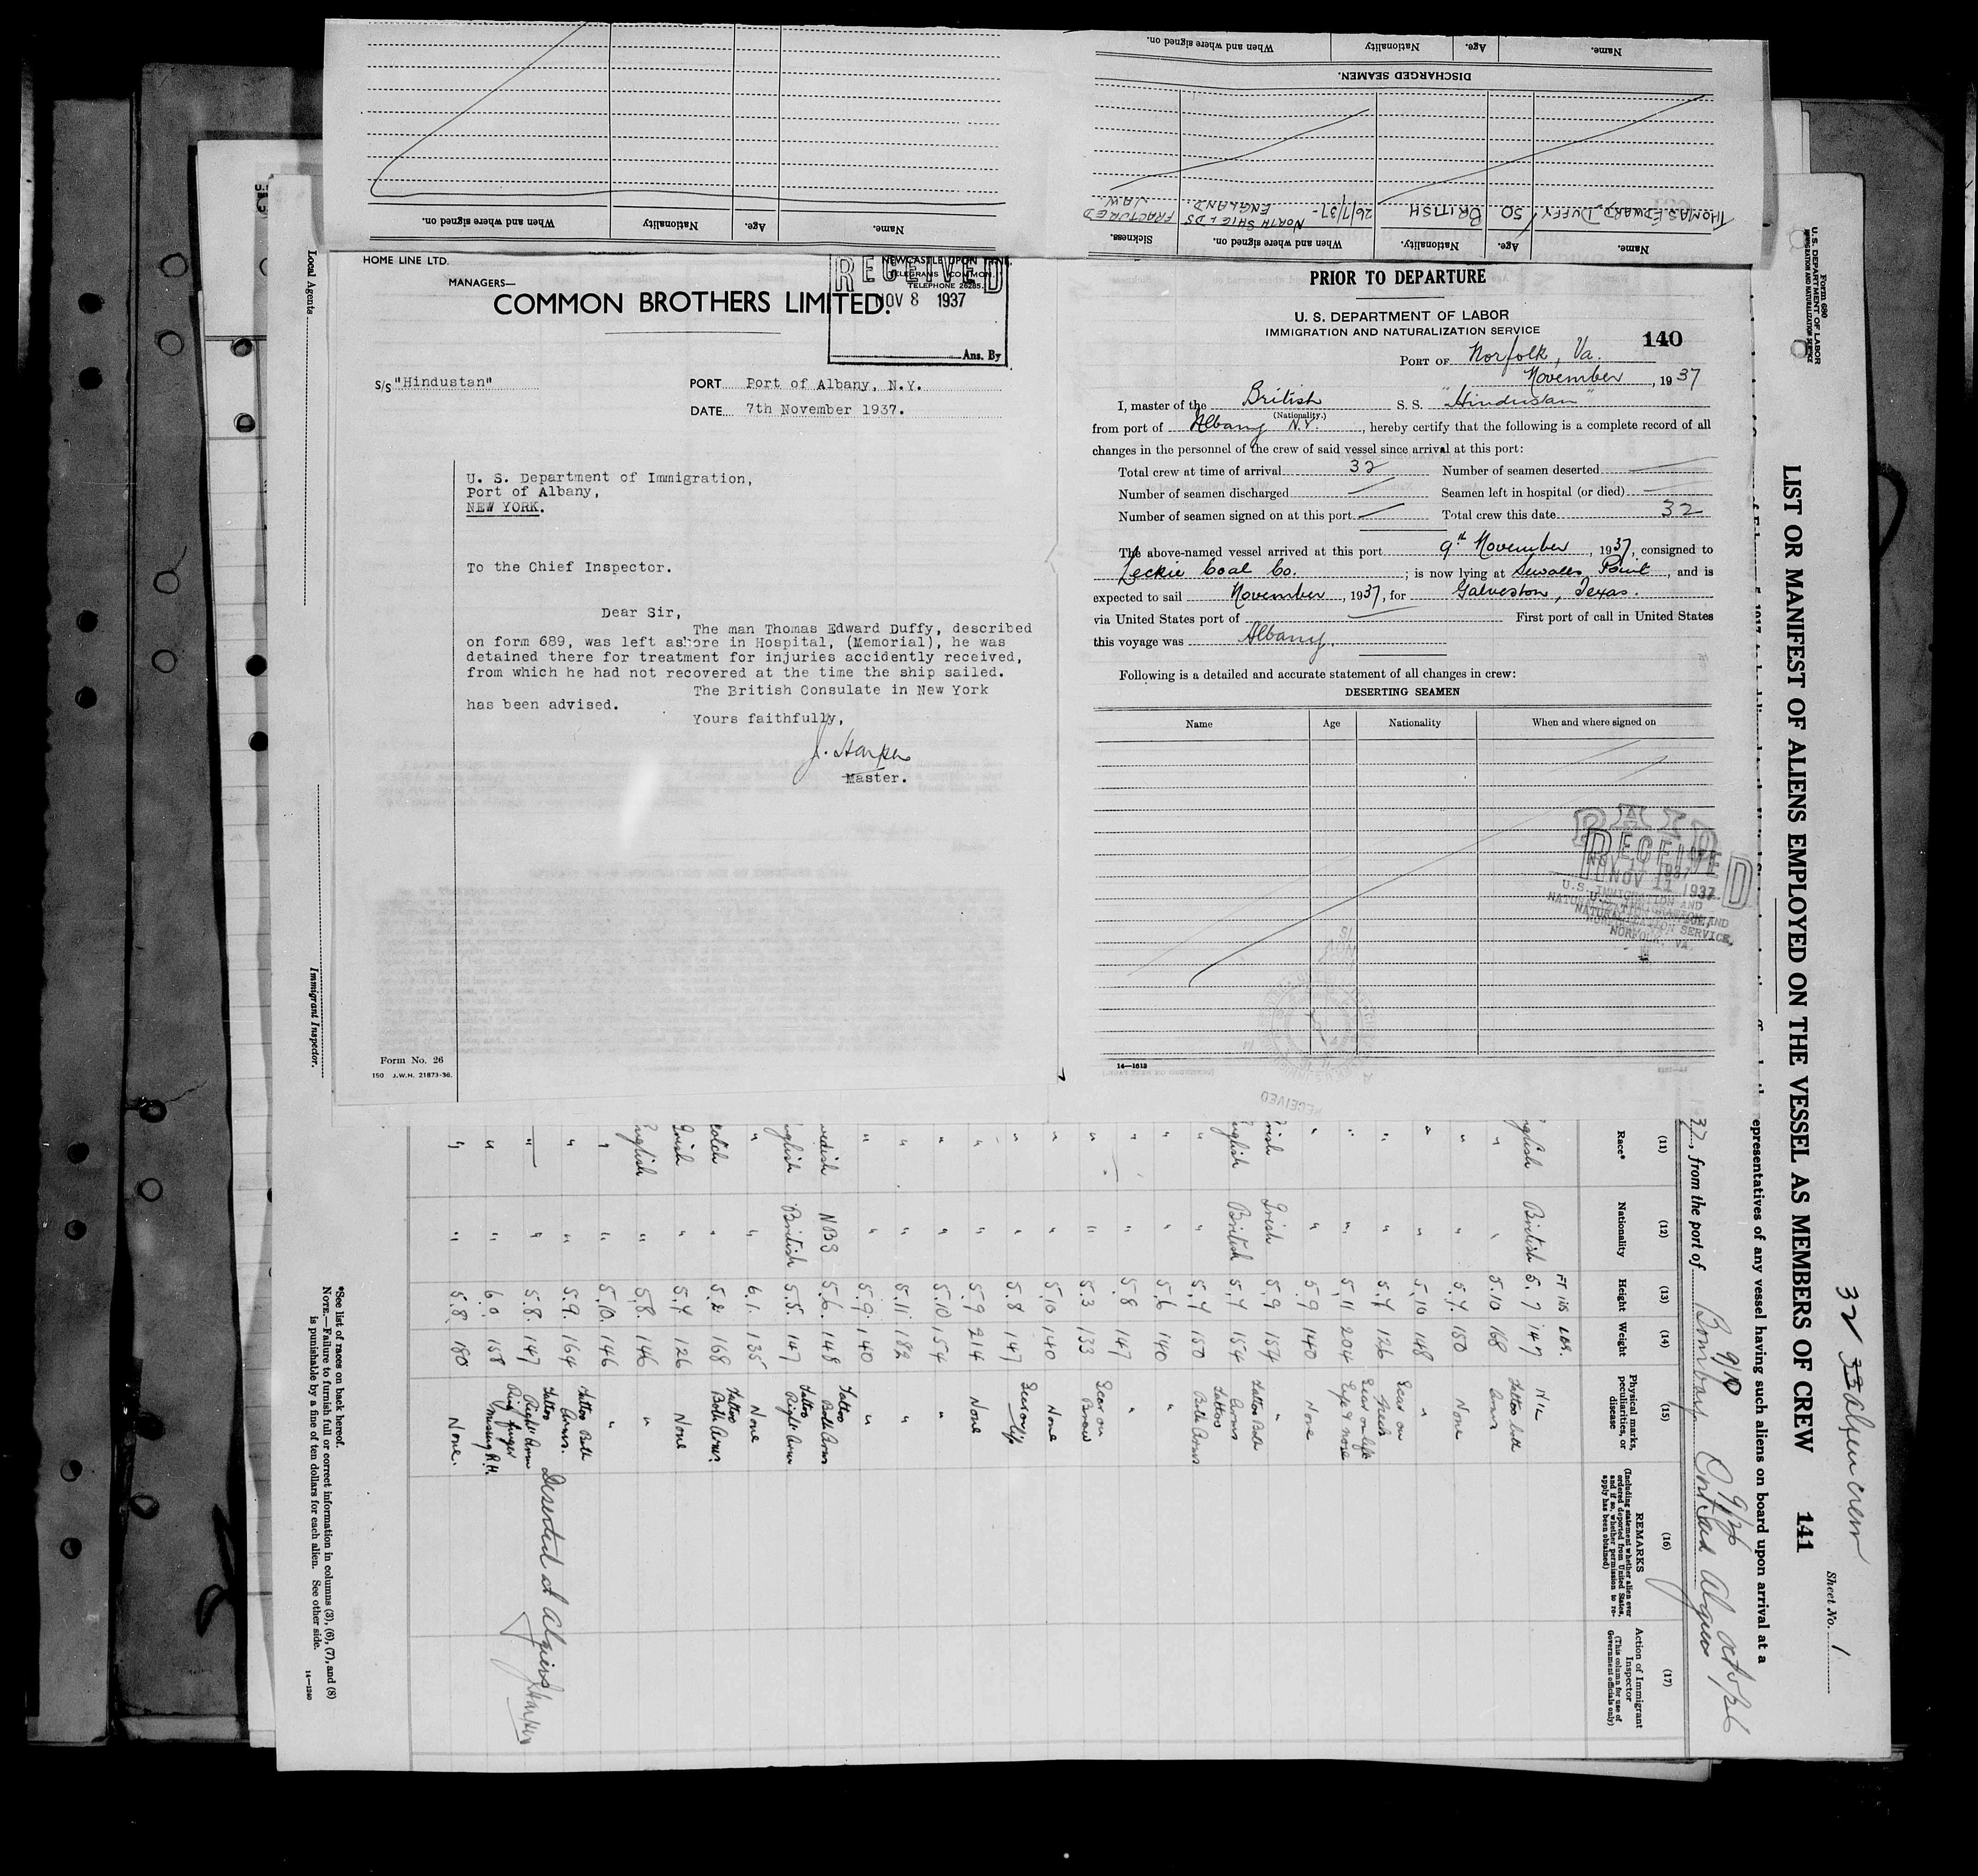 Name.
Age.
Nationality
When and where signed on.
DISCHARGED SEAMEN.
Name.
Age.
Nationality
When and where signed on.
Name.
Age.
Nationality.
When and where signed on.
Sickness.
THOMAS. EDWARD, DUFFY, 50 BRITISH 26/7/37- NORTH SHIELDS ENGLAND. FRACTURED JAW.
HOME LINE LTD.
NEWCASTLE UPON TYNE,
MANAGERS—
TELEGRAMS "COMMON,
TELEPHONE 26285.
COMMON BROTHERS LIMITED.
RECEIVED
NOV 8 1937
Ans. By
S/S "Hindustan"
PORT Port of Albany, N.Y.
DATE 7th November 1937.
U. S. Department of Immigration,
Port of Albany,
NEW YORK.
To the Chief Inspector.
Dear Sir,
The man Thomas Edward Duffy, described
on form 689, was left ashore in Hospital, (Memorial), he was
detained there for treatment for injuries accidently received,
from which he had not recovered at the time the ship sailed.
The British Consulate in New York
has been advised.
Yours faithfully,
J. Harper
Master.
Form No. 26
150 J.W.H. 21873-36.
PRIOR TO DEPARTURE
U. S. DEPARTMENT OF LABOR
IMMIGRATION AND NATURALIZATION SERVICE
140
PORT OF Norfolk, Va.
November, 1937
I, master of the British S. S. "Hindustan"
(Nationality.)
from port of Albany N.Y., hereby certify that the following is a complete record of all
changes in the personnel of the crew of said vessel since arrival at this port:
Total crew at time of arrival 32 Number of seamen deserted
Number of seamen discharged Seamen left in hospital (or died)
Number of seamen signed on at this port Total crew this date 32
The above-named vessel arrived at this port 9th November, 1937, consigned to
Leckie Coal Co.; is now lying at Sewalls Point, and is
expected to sail November, 1937, for Galveston, Texas.
via United States port of First port of call in United States
this voyage was Albany.
Following is a detailed and accurate statement of all changes in crew:
DESERTING SEAMEN
Name Age Nationality When and where signed on
PAID
RECEIVED
NOV 11 1937
U.S. IMMIGRATION AND
NATURALIZATION SERVICE,
NORFOLK, VA.
14—1613
RECEIVED
Form 680
U. S. DEPARTMENT OF LABOR
IMMIGRATION AND NATURALIZATION SERVICE
32 33 alien crew
Sheet No. 1
LIST OR MANIFEST OF ALIENS EMPLOYED ON THE VESSEL AS MEMBERS OF CREW 141
representatives of any vessel having such aliens on board upon arrival at a
1937, from the port of Bombay
(11) Race*
(12) Nationality
(13) Height
(14) Weight
(15) Physical marks, peculiarities, or disease
(16) REMARKS (Including statement whether alien ever ordered deported from United States, and if so, whether permission to reapply has been obtained)
(17) Action of Immigrant Inspector (This column for use of Government officials only)
FT INS LBS.
nglish British 5. 7 147 NIL
" " 5.10 168 Tattoo both Arms
" " 5.7. 150 None
" " 5.10 148 "
" " 5.7 126 Scar on Cheek
" " 5.11 204 Scar on left Eye & nose
" " 5.9 140 None
rish Irish 5.9 154 "
nglish British 5.7 154 Tattoo Both Arms
" " 5.7 150 Tattoo Both Arms
" " 5.6 140 "
" " 5.8 147 "
" " 5.3 133 Scar on Brow
" " 5.10 140 None
" " 5.8 147 Scar on lip
" " 5.9 214 None
" " 5.10 154 "
" " 5.11. 182 "
" " 5.9. 140 "
wedish NBS 5.6. 148 Tattoo Both Arms
nglish British 5.5. 147 Tattoo Right Arm
" " 6.1. 135 None
cotch " 5.2 168 Tattoo Both Arms.
Irish " 5.7 126 None
English " 5.8. 146 "
" " 5.10. 146 "
" " 5.9. 164 Tattoo Both Arms.
" " 5.8. 147 Tattoo Right Arm Deserted at Algiers J Harper
" " 6.0 158 Ring finger missing R.H.
" " 5.8. 180 None.
*See list of races on back hereof.
NOTE.—Failure to furnish full or correct information in columns (3), (6), (7), and (8)
is punishable by a fine of ten dollars for each alien. See other side.
14—1240
Local Agents
Immigrant Inspector.